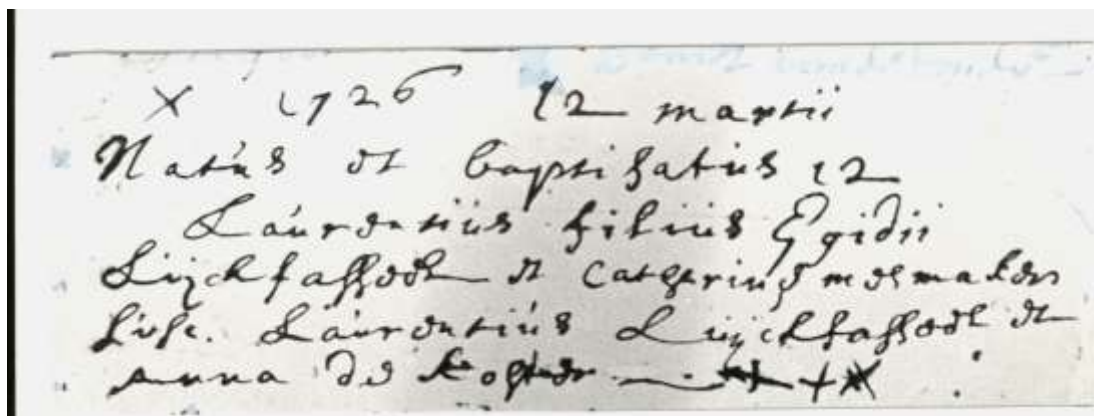 X 1726 12 martii
Natus et baptisatus 12
Laurentius filius Egidii
Luijckfasseel et Catherinę mesmaker
susc. Laurentius Luijckfasseel et
Anna de